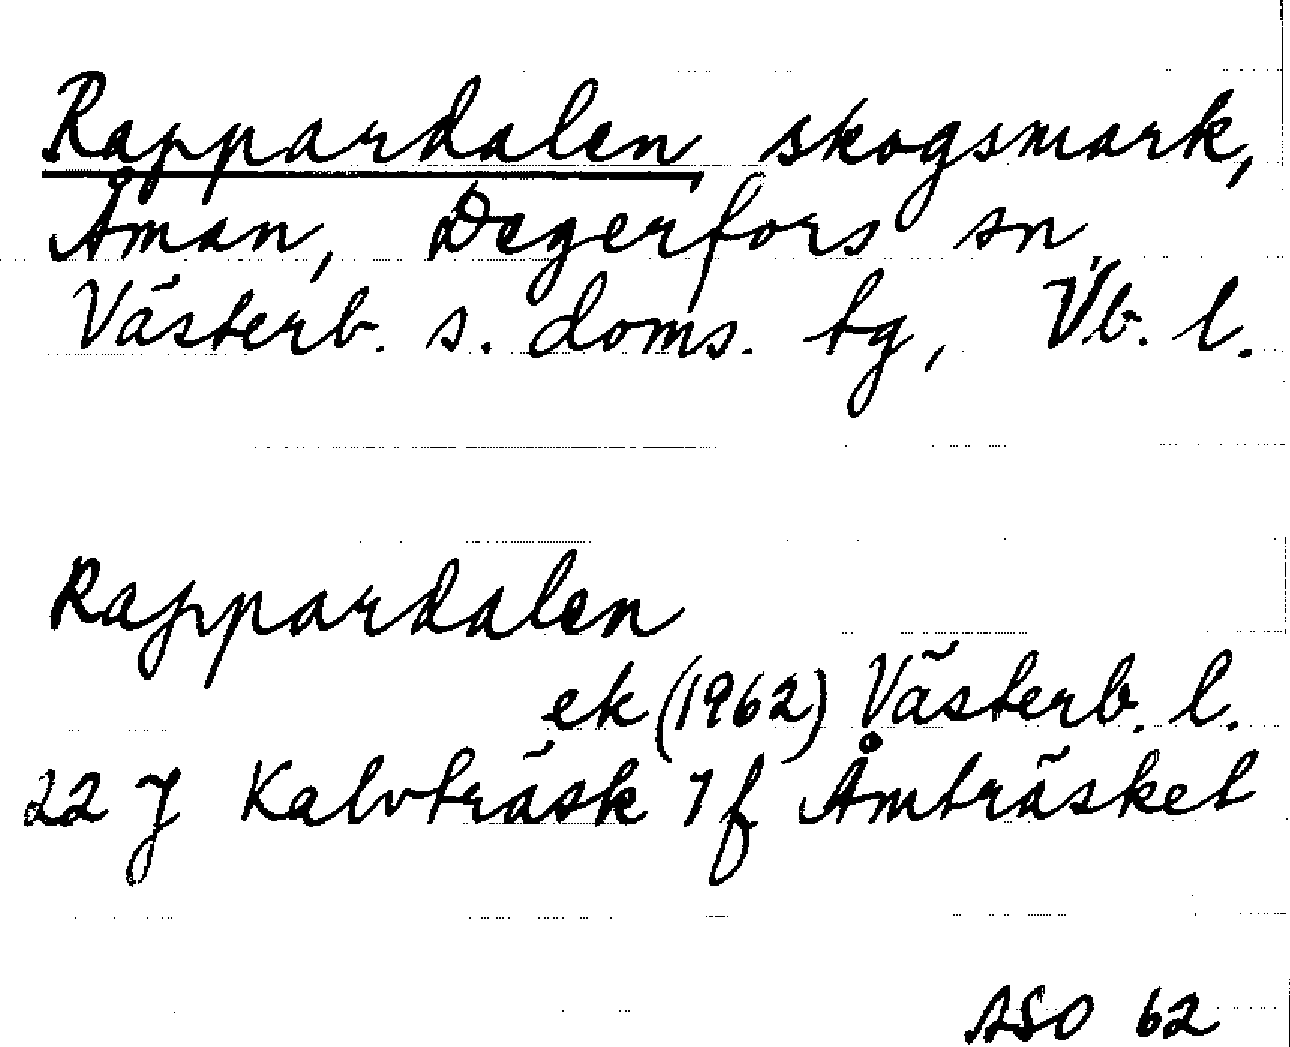 Rappardalen, skogsmark,
Åman, Degerfors sn,
Västerb. s. doms. tg, Vb. l.
Rappardalen
ek (1962) Västerb. l.
22 J Kalvträsk 7f Åmträsket
ASO 62